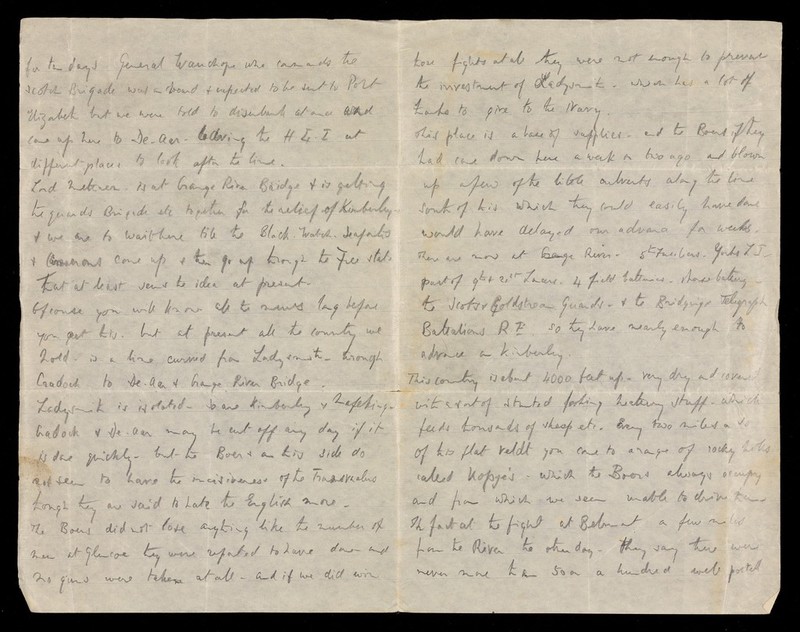 for ten days. General Wauchope who commands the
Scotch Brigade was on board & expected to be sent to Port
Elizabeth but we were told to disembark at once and
come up here to De-Aar. leaving the H.L.I. at
different places to look after the line.
Lord Methuen is at Orange River Bridge & is getting
the guards Brigade etc together for the relief of Kimberley
& we are to wait here till the Black Watch. Seaforths
& come up & then go up through the Free State
that at least seems the idea at present.
Of course you will know all the news long before
you get this. but at present all the country we
hold is a line curved from Ladysmith through
Cradock to De-Aar & Orange River Bridge.
Ladysmith is isolated. so are Kimberley & Mafeking.
Cradock & De-Aar may be cut off any day if it
is done quickly. but the Boers on this side do
not seem to have the incisiveness of the Transvaalers
though they are said to hate the English more.
The Boers did not lose anything like the number of
men at Glencoe they were reported to have done and
no guns were taken at all. and if we did win
those fights at all they were not enough to prevent
the investment of Ladysmith. which has a lot of
thanks to give to the Navy.
This place is a base of supplies. and the Boers if they
had come down here a week or two ago and blown
up a few of the little culverts along the line
south of this which they could easily have done
would have delayed our advance for weeks.
There are now at Orange River. 5th Fusiliers. Yorks L.I.
part of 9th & 21st Lancers. 4 field batteries. horse battery
the Scots & Coldstream Guards. & the Bridging & Telegraph
Battalions R.E. so they have nearly enough to
advance on Kimberley.
This country is about 4000 feet up. very dry and covered
with a sort of stunted looking heathery stuff. which
feeds thousands of sheep etc. Every two miles or so
of this flat veldt you come to a range of rocky
called Kopjes. which the Boers always occupy
and from which we seem unable to drive them
In fact at the fight at Belmont a few miles
from the River the other day. they say there were
never more than 50 or a hundred well posted